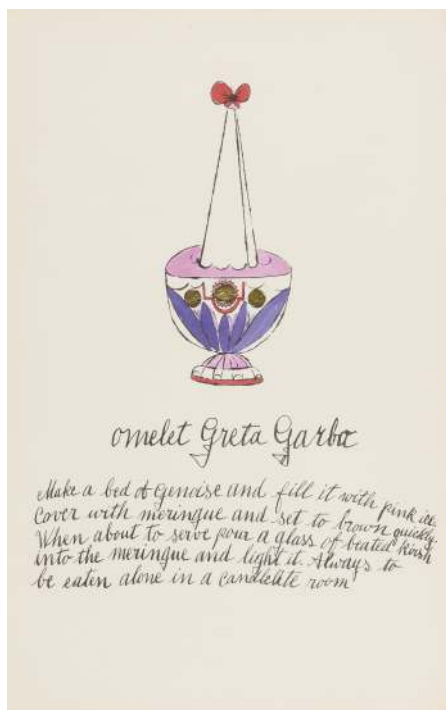 omelet Greta Garbo
Make a bed of Genoise and fill it with pink ice
Cover with meringue and set to brown quickly.
When about to serve pour a glass of heated kirsh
into the meringue and light it. Always to
be eaten alone in a candlelite room